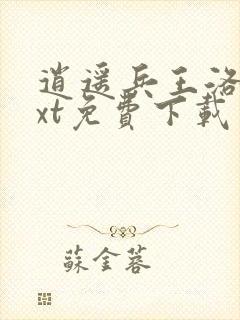 逍遥兵王洛
xt免費下載
蘇金蓉